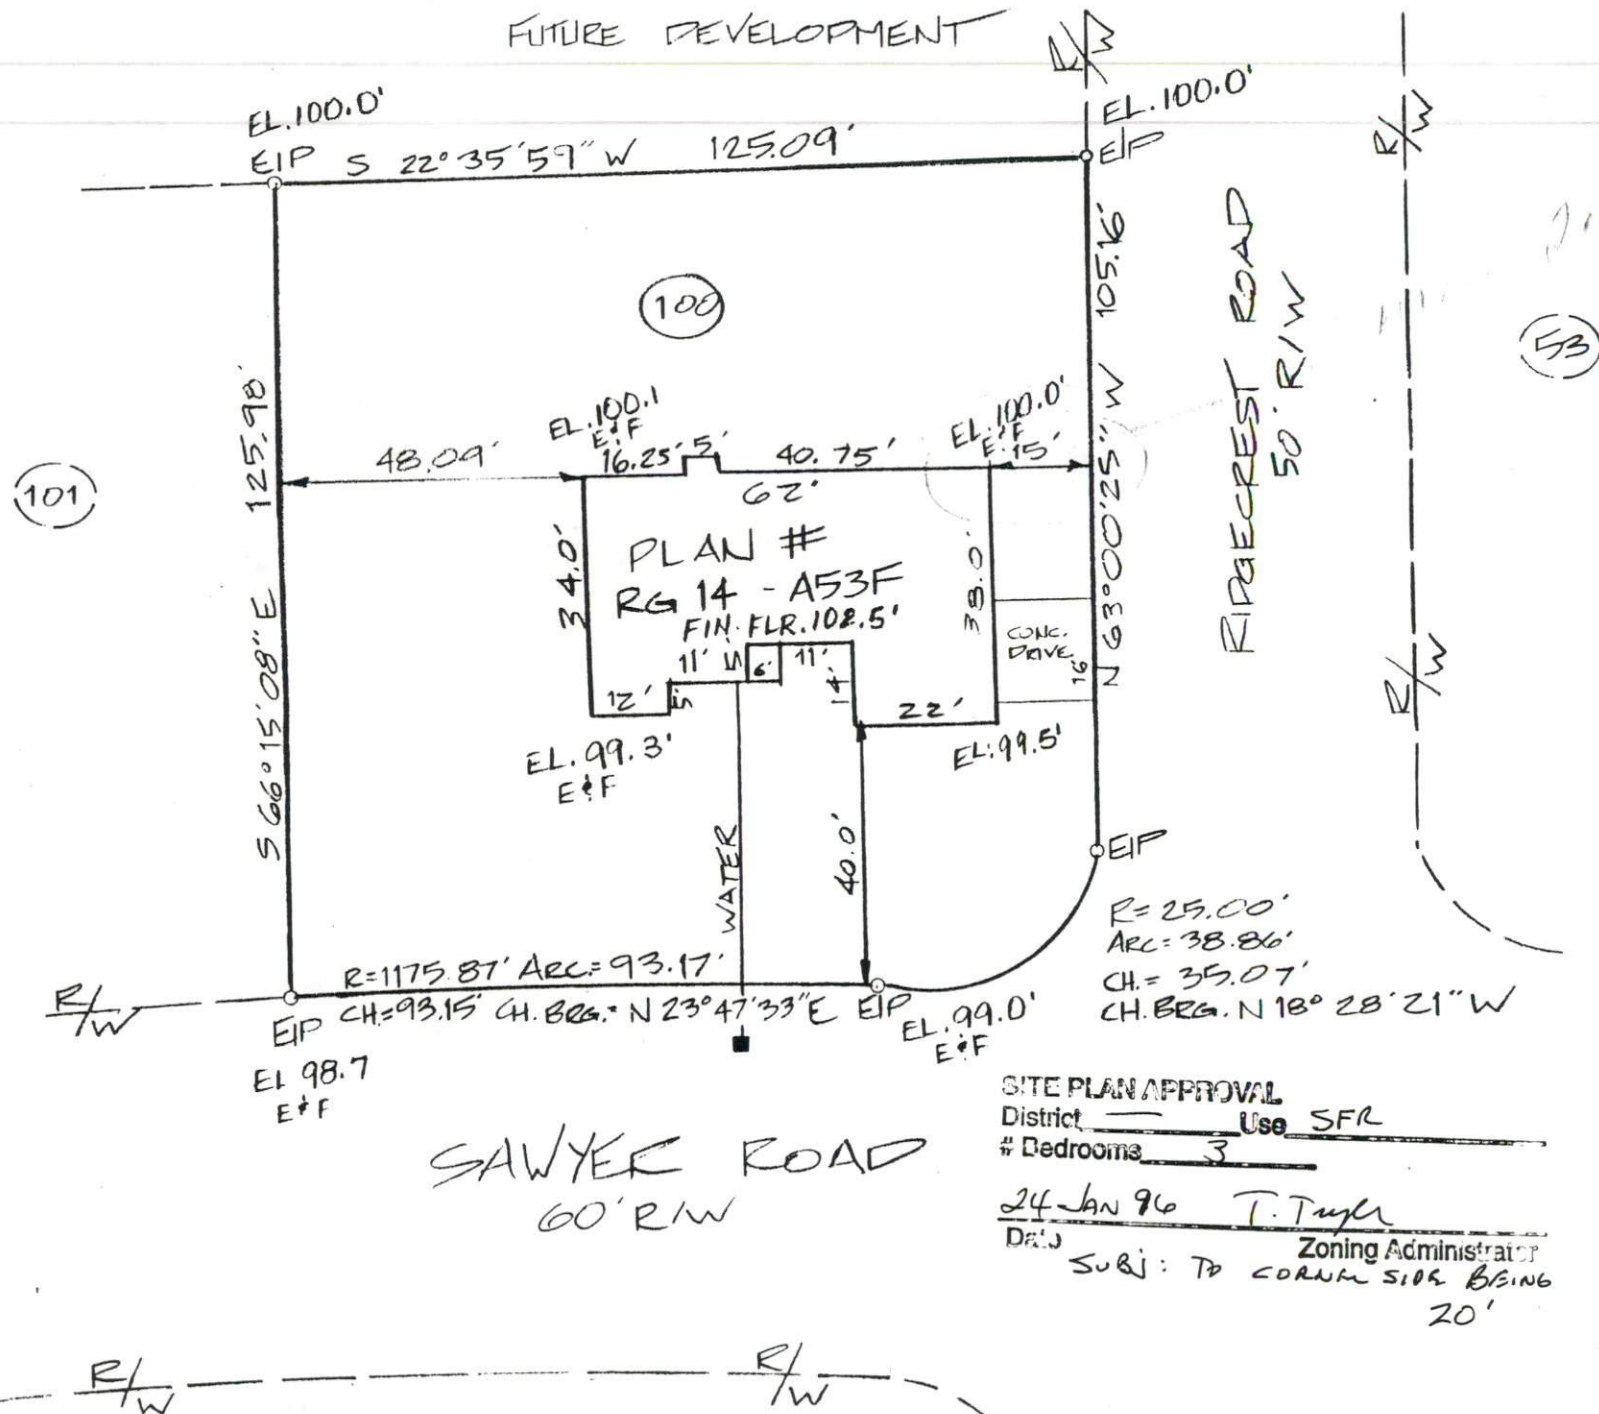 FUTURE DEVELOPMENT
R/W
EL.100.0'
EL.100.0'
EIP S 22°35'59" W 125.09'
EIP
R/W
105.16'
N 63°00'25" W
RIDGECREST ROAD
50' R/W
100
53
125.98'
S 66°15'08" E
101
EL.100.1
E&F
EL.100.0'
E&F
48.09'
16.25' 5' 40.75'
15'
62'
34.0'
PLAN #
RG 14 - A53F
FIN. FLR. 102.5'
38.0'
CONC.
DRIVE
16
11' 5 6' 11'
12' 5' 14' 22'
EL. 99.3'
E&F
EL. 99.5'
R/W
WATER
40.0'
EIP
R=25.00'
ARC=38.86'
CH.= 35.07'
CH.BRG. N 18° 28' 21" W
R=1175.87' ARC=93.17'
R/W
CH=93.15' CH. BRG.= N 23°47'33" E
EIP
EIP
EL. 99.0'
E&F
EL 98.7
E&F
SAWYER ROAD
60' R/W
SITE PLAN APPROVAL
District — Use SFR
# Bedrooms 3
24 JAN 96
Date Zoning Administrator
SUBJ: TO CORNER SIDE BEING
20'
R/W
R/W